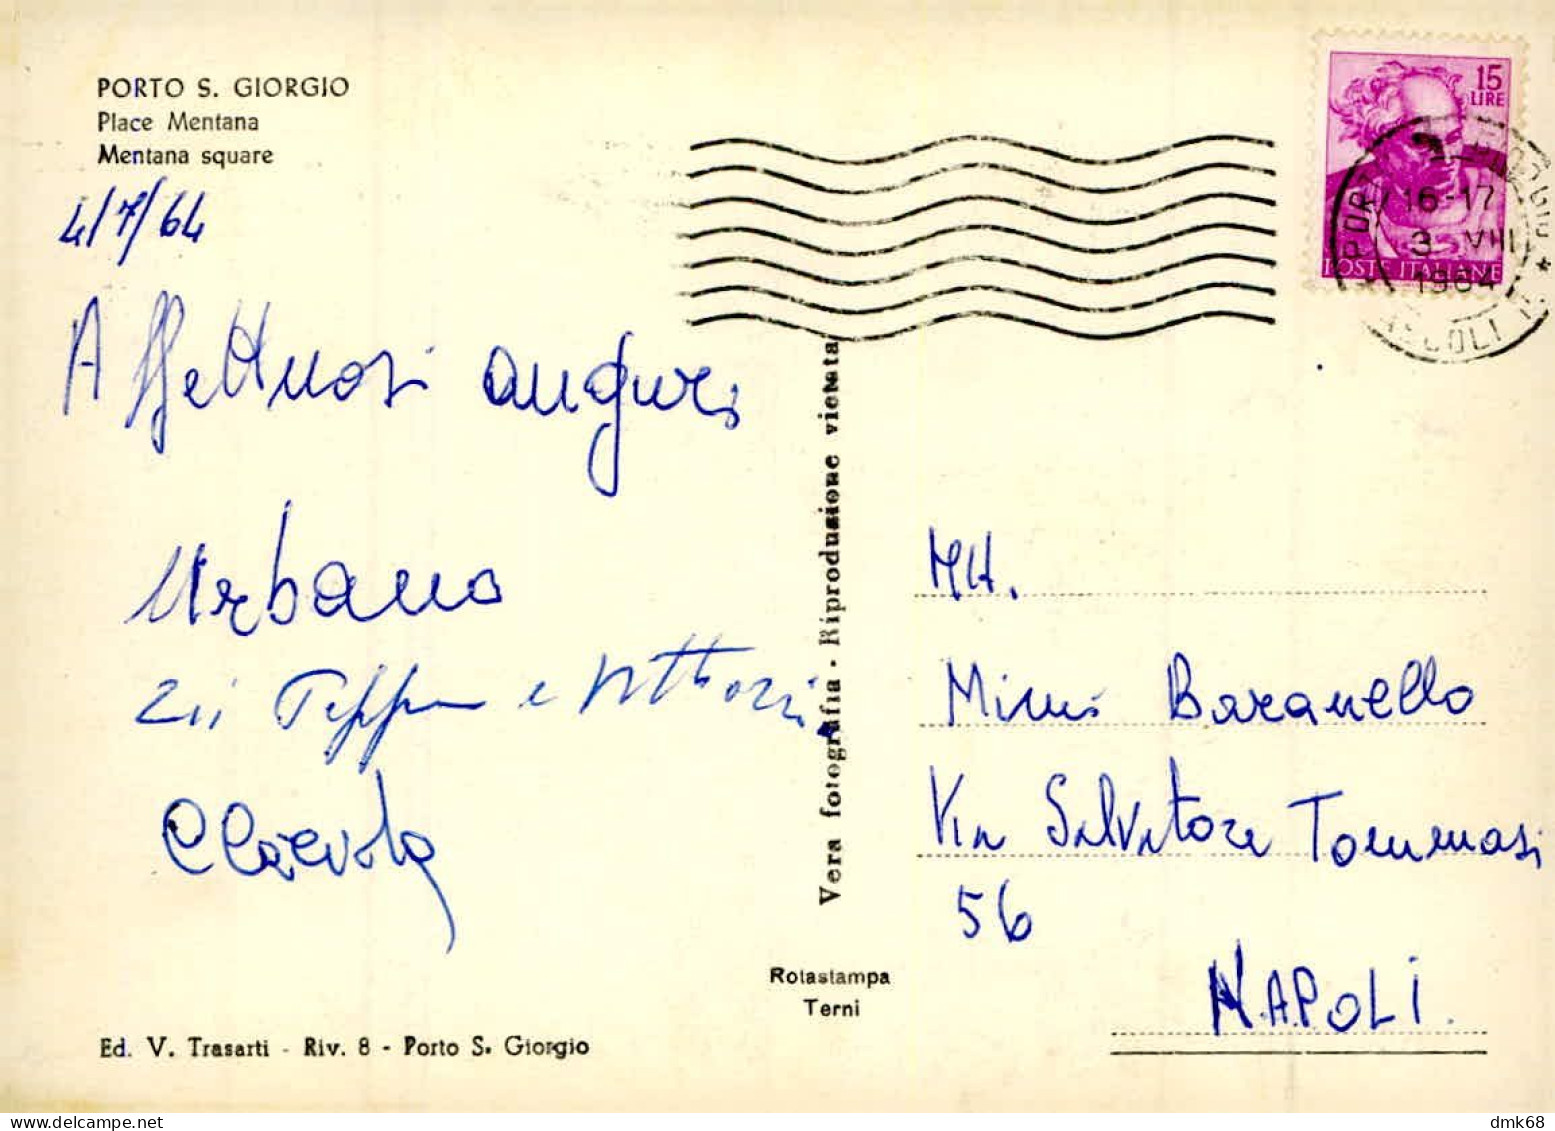 PORTO S. GIORGIO
Place Mentana
Mentana square
4/7/64
Affettuosi auguri
Urbano
Zii Peppe e Vittoria
Vera fotografia - Riproduzione vietata
Rotastampa
Terni
Ed. V. Trasarti - Riv. 8 - Porto S. Giorgio
15
LIRE
POSTE ITALIANE
16-17
3 VIII
1964
Mimì Baranello
Via Salvatore Tommasi
56
NAPOLI.
dmk68